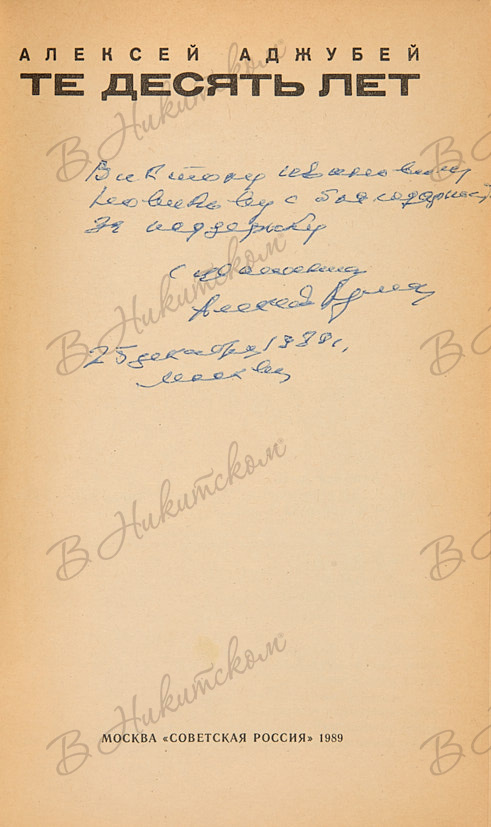 АЛЕКСЕЙ АДЖУБЕЙ
ТЕ ДЕСЯТЬ ЛЕТ
Виктору Ивановичу
Новикову с благодарностью
за поддержку
с уважением
Алексей Аджубей
25 декабря
Москва
В Никитском
В Никитском
В Никитском
В Никитском
МОСКВА «СОВЕТСКАЯ РОССИЯ» 1989